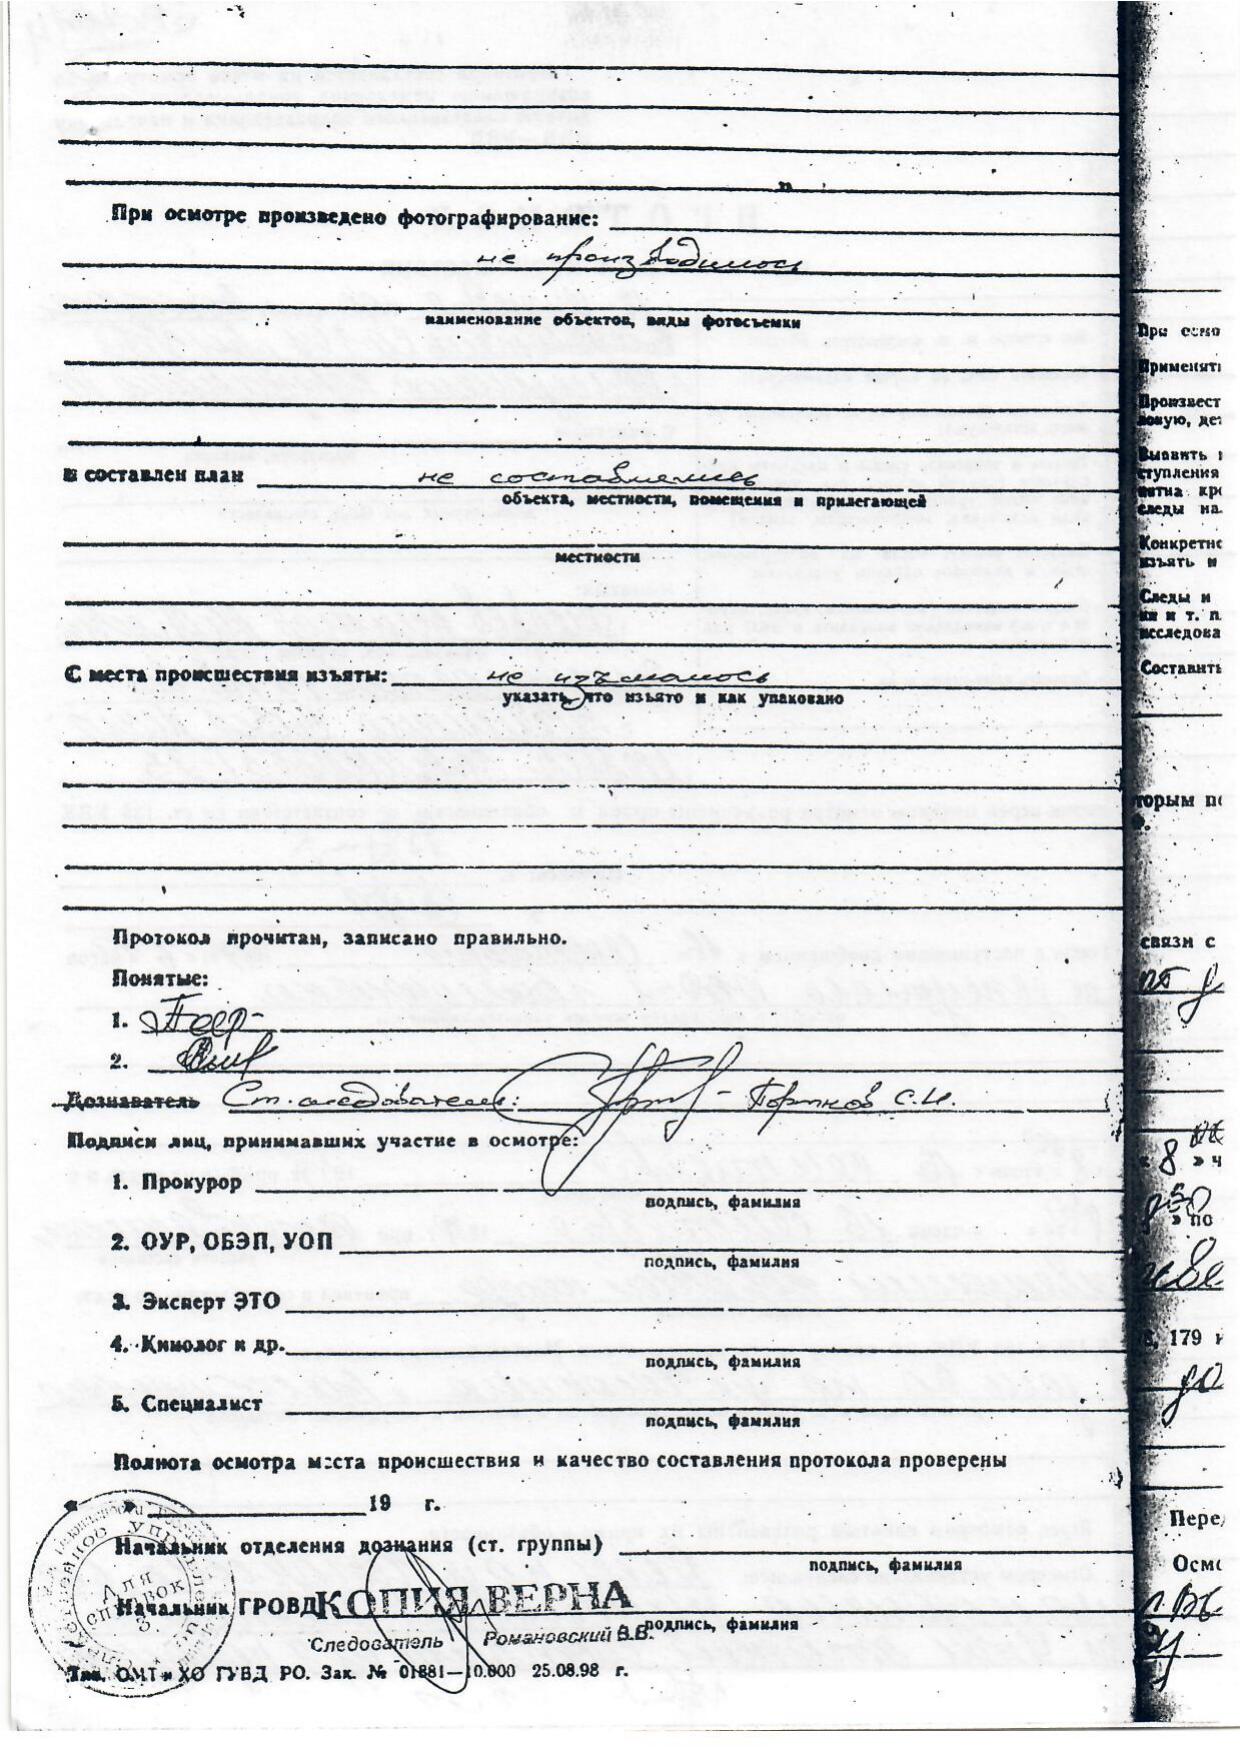 При осмотре произведено фотографирование:
не производилось
наименование объектов, виды фотосъемки
и составлен план не составлялись
объекта, местности, помещения и прилегающей
местности
С места происшествия изъяты: не изымалось
указать, что изъято и как упаковано
Протокол прочитан, записано правильно.
Понятые:
1.
2.
Дознаватель Ст. следователь: Портнов С.И.
Подписи лиц, принимавших участие в осмотре:
1. Прокурор
подпись, фамилия
2. ОУР, ОБЭП, УОП
подпись, фамилия
3. Эксперт ЭТО
4. Кинолог и др.
подпись, фамилия
5. Специалист
подпись, фамилия
Полнота осмотра места происшествия и качество составления протокола проверены
« » 19 г.
Начальник отделения дознания (ст. группы)
подпись, фамилия
Начальник ГРОВД
подпись, фамилия
КОПИЯ ВЕРНА
Следователь Романовский В.В.
Тип. ОМТ и ХО ГУВД РО. Зак. № 01881—10.000 25.08.98 г.
Для
справок
3
При осмо
Применять
Произвест
довую, дет
Выявить
ступления
пятна кро
следы на
Конкретно
изъять и
Следы и
ки и т. п.
исследова
Составить
торым по
связи с
« 8 » ч
» по
179
Пере
Осмо